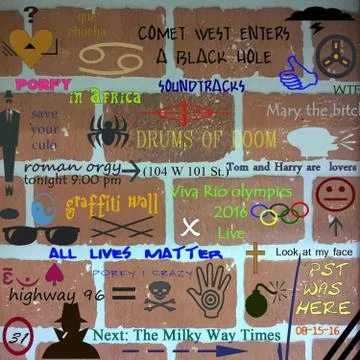 ?
que
chocha
COMET WEST ENTERS
A BLACK HOLE
WTF
PORFY
in AFRICA
SOUNDTRACKS
save
your
culo
Mary the bitch
DRUMS OF DOOM
roman orgy
tonight 9:00 pm
(104 W 101 St.)
Tom and Harry are lovers
graffiti wall
Viva Rio olympics
2016
Live
X
ALL LIVES MATTER
Look at my face
PORFY I CRAZY
highway 96
=
PST
WAS
HERE
08-15-16
31
Next: The Milky Way Times